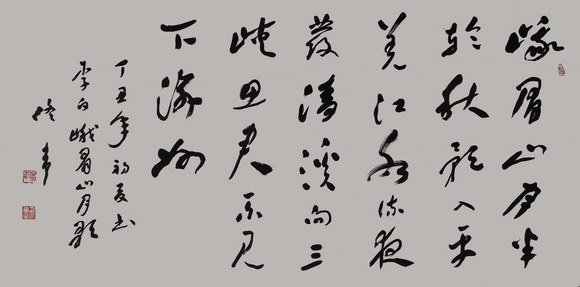 峨眉山月半
轮秋影入平
羌江水流夜
发清溪向三
峡思君不见
下渝州
丁丑年初夏书
李白峨眉山月歌